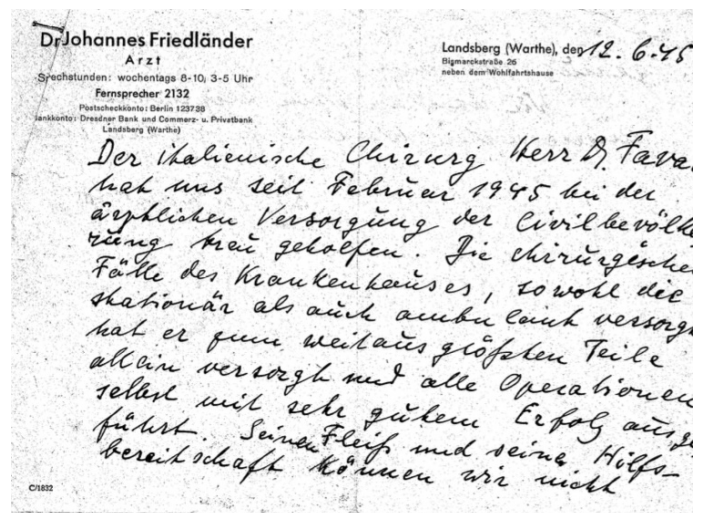 Dr Johannes Friedländer
Arzt
Sprechstunden: wochentags 8-10, 3-5 Uhr
Fernsprecher 2132
Postscheckkonto: Berlin 123738
Bankkonto: Dresdner Bank und Commerz- u. Privatbank
Landsberg (Warthe)
Landsberg (Warthe), den 12. 6. 45
Bismarckstraße 26
neben dem Wohlfahrtshause
Der italienische Chirurg Herr Dr. Fava
hat uns seit Februar 1945 bei der
ärztlichen Versorgung der Civilbevölke
rung treu geholfen. Die chirurgische
Fälle des Krankenhauses, sowohl die
stationär als auch ambulant versorgt
hat er zum weitaus größten Teile
allein versorgt und alle Operationen
selbst mit sehr gutem Erfolg ausge
führt. Seinen Fleiß und seine Hilfs-
bereitschaft können wir nicht
C/1832